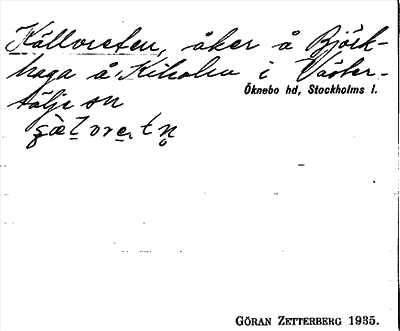 Källvreten, åker å Björk-
haga å Kiholm i Väster-
tälje sn
Öknebo hd, Stockholms l.
GÖRAN ZETTERBERG 1935.